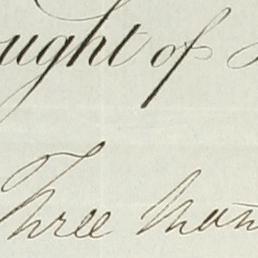 ught of
Three